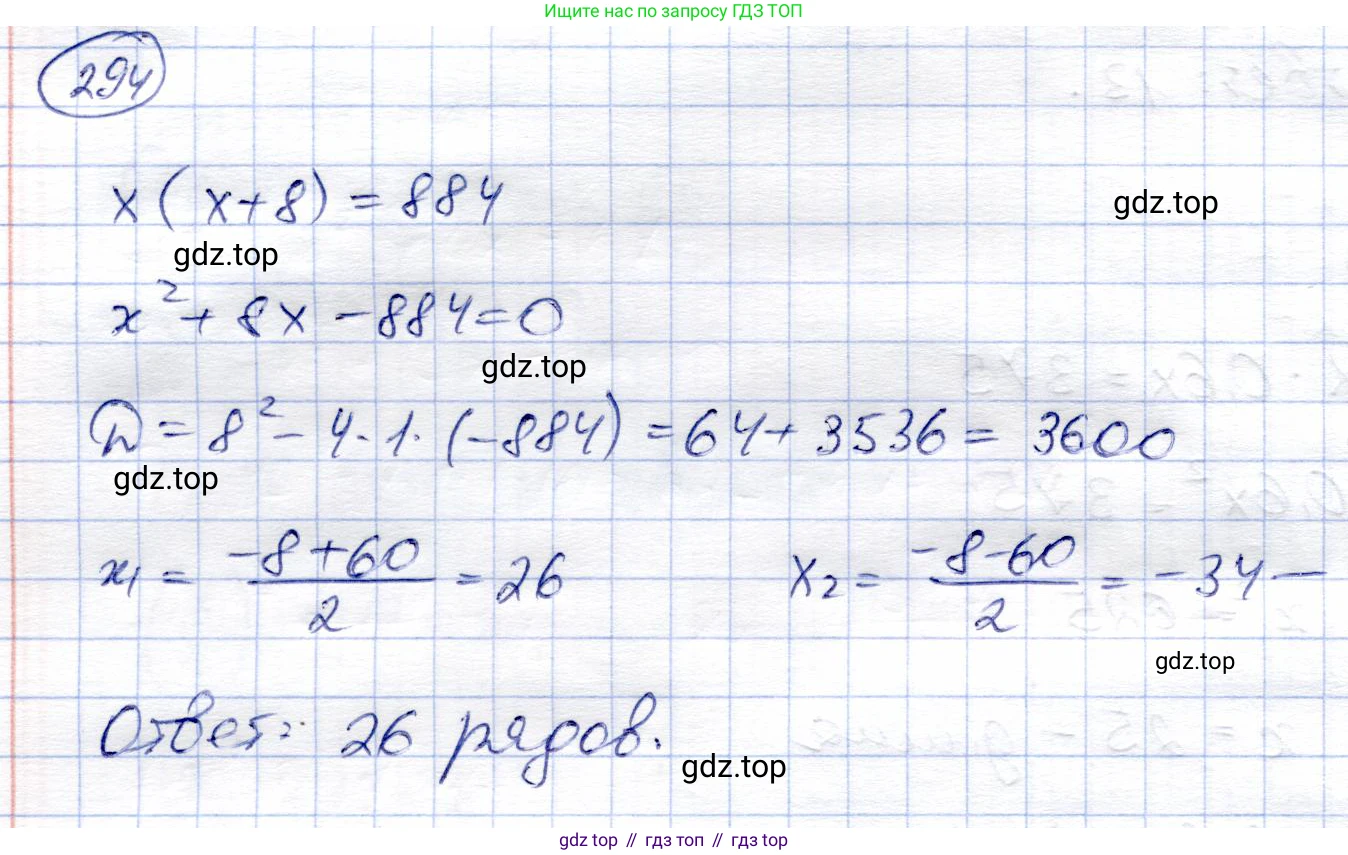 Ищите нас по запросу ГДЗ ТОП
294
x(x+8) = 884
gdz.top
gdz.top
x² + 8x - 884 = 0
gdz.top
D = 8² - 4·1·(-884) = 64 + 3536 = 3600
gdz.top
x₁ = (-8+60)/2 = 26 x₂ = (-8-60)/2 = -34 —
gdz.top
Ответ: 26 рядов.
gdz.top
gdz.top // гдз топ // gdz.top